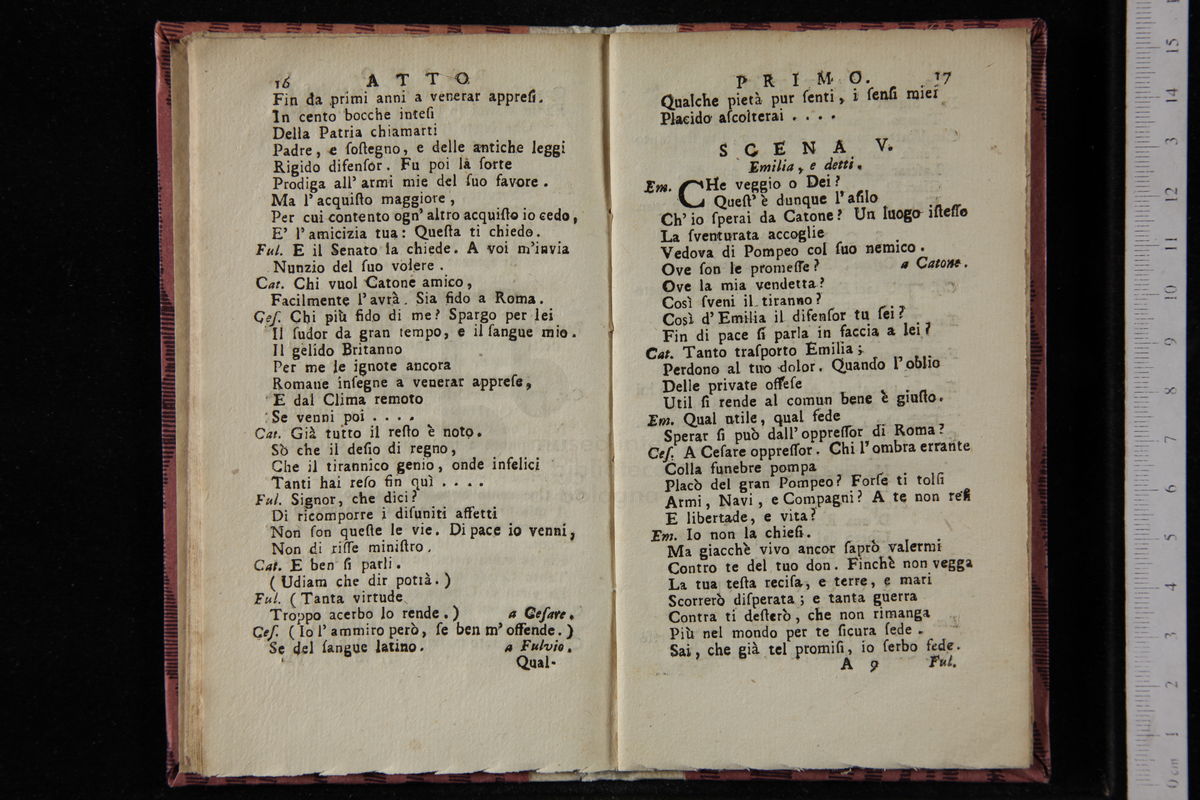 16 ATTO
Fin da primi anni a venerar appreſi.
In cento bocche inteſi
Della Patria chiamarti
Padre, e ſoſtegno, e delle antiche leggi
Rigido difenſor. Fu poi la ſorte
Prodiga all' armi mie del ſuo favore.
Ma l' acquiſto maggiore,
Per cui contento ogn' altro acquiſto io cedo,
E' l' amicizia tua: Queſta ti chiedo.
Ful. E il Senato la chiede. A voi m'invia
Nunzio del ſuo volere.
Cat. Chi vuol Catone amico,
Facilmente l' avrà. Sia fido a Roma.
Ceſ. Chi più fido di me? Spargo per lei
Il ſudor da gran tempo, e il ſangue mio.
Il gelido Britanno
Per me le ignote ancora
Romane inſegne a venerar appreſe,
E dal Clima remoto
Se venni poi . . . .
Cat. Già tutto il reſto è noto.
Sò che il deſio di regno,
Che il tirannico genio, onde infelici
Tanti hai reſo fin quì . . . .
Ful. Signor, che dici?
Di ricomporre i diſuniti affetti
Non ſon queſte le vie. Di pace io venni,
Non di riſſe miniſtro.
Cat. E ben ſi parli.
(Udiam che dir potrà.)
Ful. (Tanta virtude
Troppo acerbo lo rende.) a Ceſare.
Ceſ. (Io l' ammiro però, ſe ben m' offende.)
Se del ſangue latino. a Fulvio.
Qual-
PRIMO. 17
Qualche pietà pur ſenti, i ſenſi miei
Placido aſcolterai . . . .
SCENA V.
Emilia, e detti.
Em. CHe veggio o Dei?
Queſt' è dunque l' aſilo
Ch' io ſperai da Catone? Un luogo iſteſſo
La ſventurata accoglie
Vedova di Pompeo col ſuo nemico.
Ove ſon le promeſſe? a Catone.
Ove la mia vendetta?
Così ſveni il tiranno?
Così d' Emilia il difenſor tu ſei?
Fin di pace ſi parla in faccia a lei?
Cat. Tanto traſporto Emilia;
Perdono al tuo dolor. Quando l' oblio
Delle private offeſe
Util ſi rende al comun bene è giuſto.
Em. Qual utile, qual fede
Sperar ſi può dall' oppreſſor di Roma?
Ceſ. A Ceſare oppreſſor. Chi l' ombra errante
Colla funebre pompa
Placò del gran Pompeo? Forſe ti tolſi
Armi, Navi, e Compagni? A te non reſi
E libertade, e vita?
Em. Io non la chieſi.
Ma giacchè vivo ancor ſaprò valermi
Contro te del tuo don. Finchè non vegga
La tua teſta reciſa, e terre, e mari
Scorrerò diſperata; e tanta guerra
Contra ti deſterò, che non rimanga
Più nel mondo per te ſicura ſede.
Sai, che già tel promiſi, io ſerbo fede.
A 9 Ful.